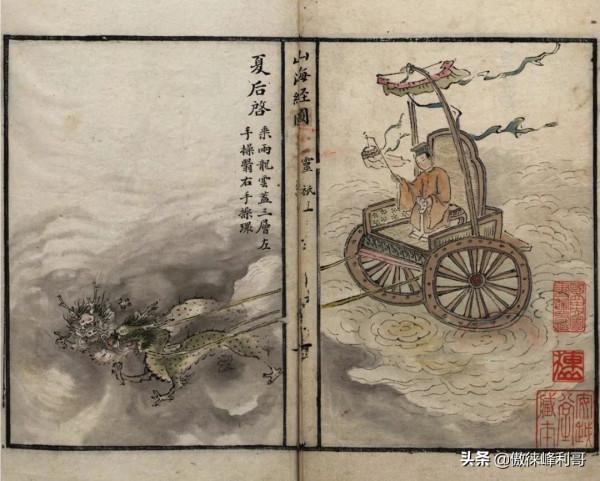 夏后啓
乘兩龍雲蓋三層左
手操翳右手操環
山海經圖
靈祇上
头条 @傲徕峰利哥